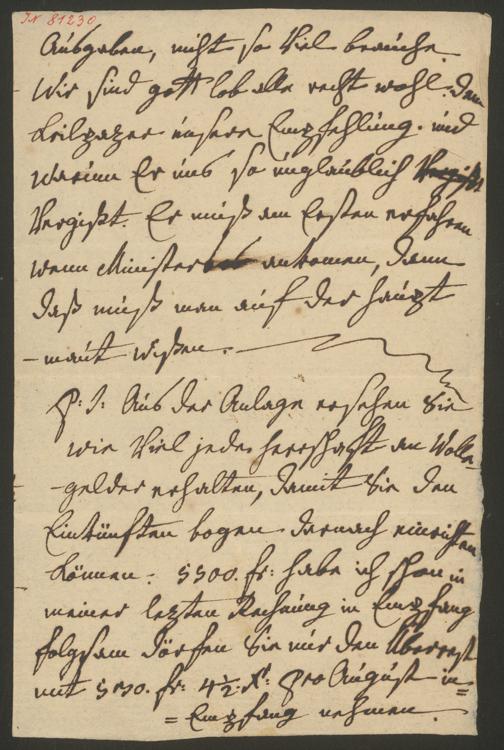 IN 81230
Ausgaben, nicht so Viel brauche.
Wir sind gott lob alle recht wohl. dem
unsere Empfehlung. und
warum Er uns so unglaublich
Vergißt. Er muß am Ersten erfahren
wenn Minister ankomen, dann
daß muß man auf der haupt
-maut wißen.
P: S: Aus der Anlage ersehen Sie
wie Viel jede herrschafft an Wolle
-gelder erhalten, damit Sie den
Einkünften bogen darnach einrichten
können. 5500. fr: habe ich schon in
meiner lezten Rechnung in Empfang
folgsam dörfen Sie nur den Überrest
mit fr: 4½ Xr: pro August in=
=Empfang nehmen.